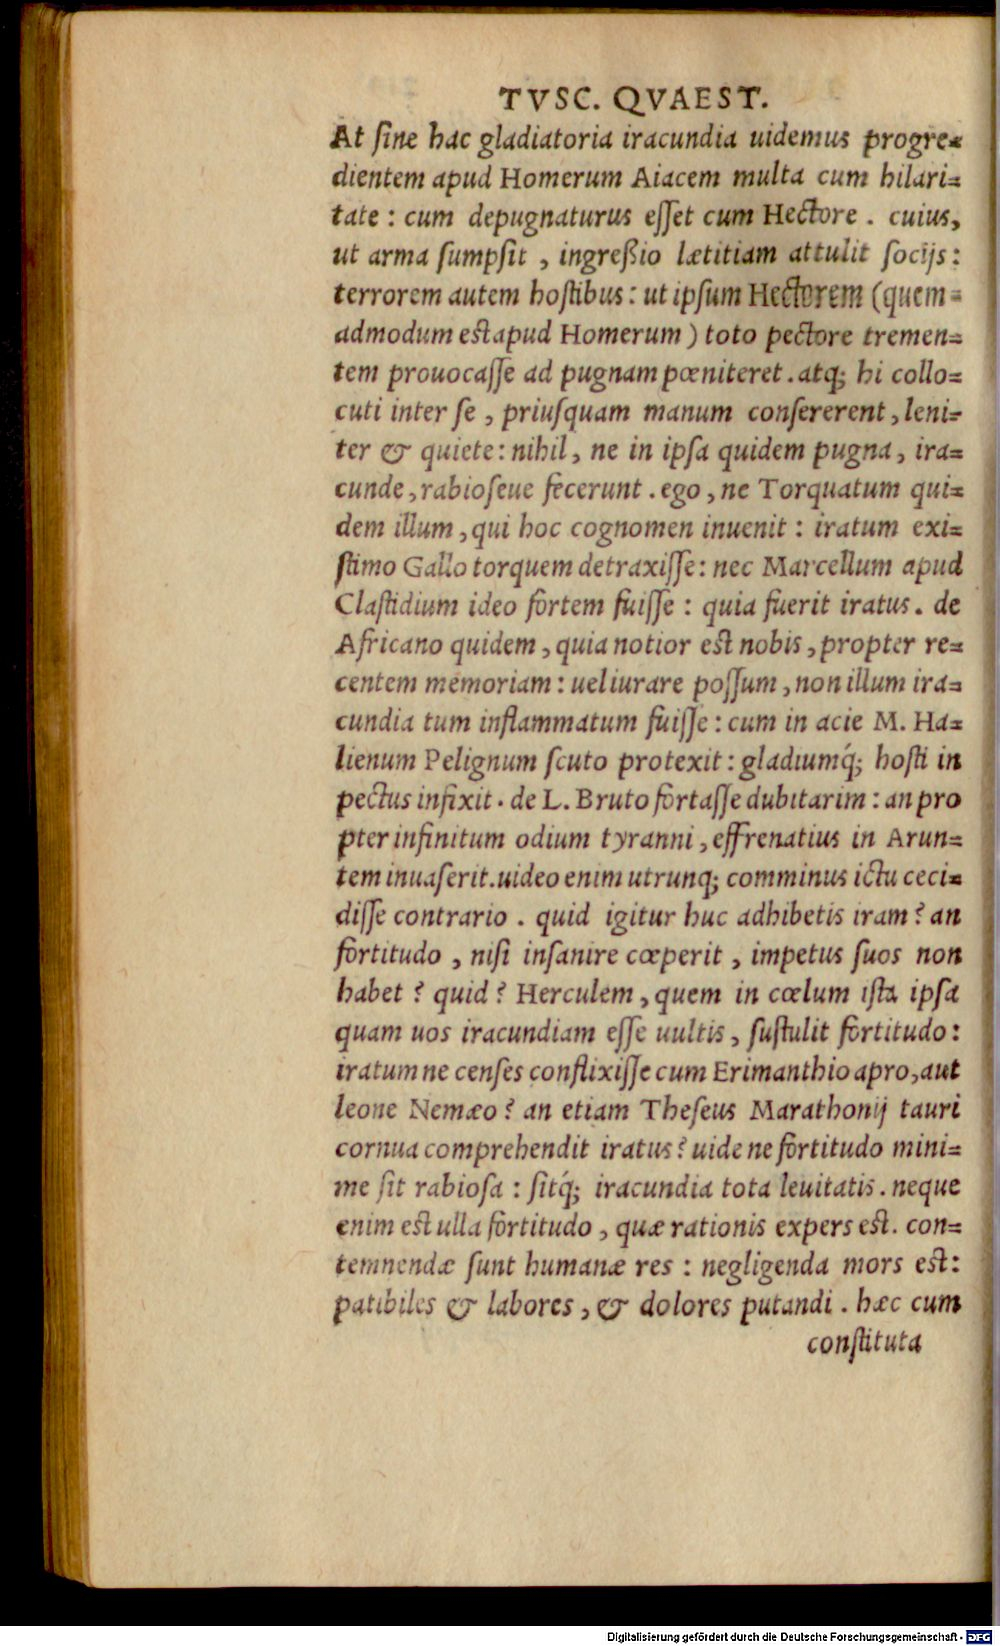 TVSC. QVAEST.
At ſine hac gladiatoria iracundia uidemus progre=
dientem apud Homerum Aiacem multa cum hilari=
tate : cum depugnaturus eſſet cum Hectore . cuius,
ut arma ſumpſit , ingreßio lætitiam attulit ſocijs :
terrorem autem hoſtibus : ut ipſum Hectorem (quem=
admodum est apud Homerum ) toto pectore tremen=
tem prouocaſſe ad pugnam pœniteret . atq; hi collo=
cuti inter ſe , priuſquam manum conſererent , leni=
ter & quiete : nihil , ne in ipſa quidem pugna , ira=
cunde , rabioſeue fecerunt . ego , ne Torquatum qui=
dem illum , qui hoc cognomen inuenit : iratum exi=
ſtimo Gallo torquem detraxiſſe : nec Marcellum apud
Claſtidium ideo fortem fuiſſe : quia fuerit iratus . de
Africano quidem , quia notior est nobis , propter re=
centem memoriam : uel iurare poſſum , non illum ira=
cundia tum inflammatum fuiſſe : cum in acie M. Ha=
lienum Pelignum ſcuto protexit : gladiumq́; hoſti in
pectus infixit . de L. Bruto fortaſſe dubitarim : an pro
pter infinitum odium tyranni , effrenatius in Arun=
tem inuaſerit . uideo enim utrunq; comminus ictu ceci=
diſſe contrario . quid igitur huc adhibetis iram ? an
fortitudo , niſi inſanire cœperit , impetus ſuos non
habet ? quid ? Herculem , quem in cœlum iſta ipſa
quam uos iracundiam eſſe uultis , ſuſtulit fortitudo :
iratum ne cenſes conflixiſſe cum Erimanthio apro , aut
leone Nemæo ? an etiam Theſeus Marathonij tauri
cornua comprehendit iratus ? uide ne fortitudo mini=
me ſit rabioſa : ſitq́; iracundia tota leuitatis . neque
enim est ulla fortitudo , quæ rationis expers est . con=
temnendæ ſunt humanæ res : negligenda mors est :
patibiles & labores , & dolores putandi . hæc cum
conſtituta
Digitalisierung gefördert durch die Deutsche Forschungsgemeinschaft - DFG